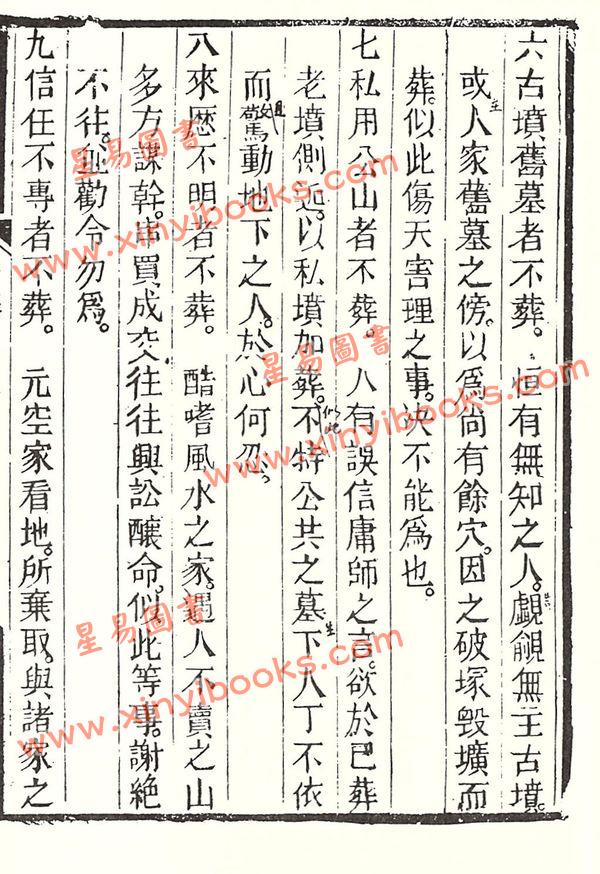 六古墳舊墓者不葬。　恒有無知之人。覷覦無主古墳。
或人家舊墓之傍。以爲尚有餘穴。因之破塚毀壙而
葬。似此傷天害理之事。决不能爲也。
七私用公山者不葬。　人有誤信庸師之言。欲於已葬
老墳側近。以私墳加葬。似此不特公共之墓下人丁不依
而驚動地下之人。於心何忍。
八來歷不明者不葬。　酷嗜風水之家。遇人不賣之山
多方謀幹。串買成交。往往興訟釀命。似此等事。謝絶
不往。勸令勿爲。
九信任不專者不葬。　元空家看地。所棄取。與諸家之
星易圖書
www.xinyibooks.com
星易圖書
www.xinyibooks.com
星易圖書
www.xinyibooks.com